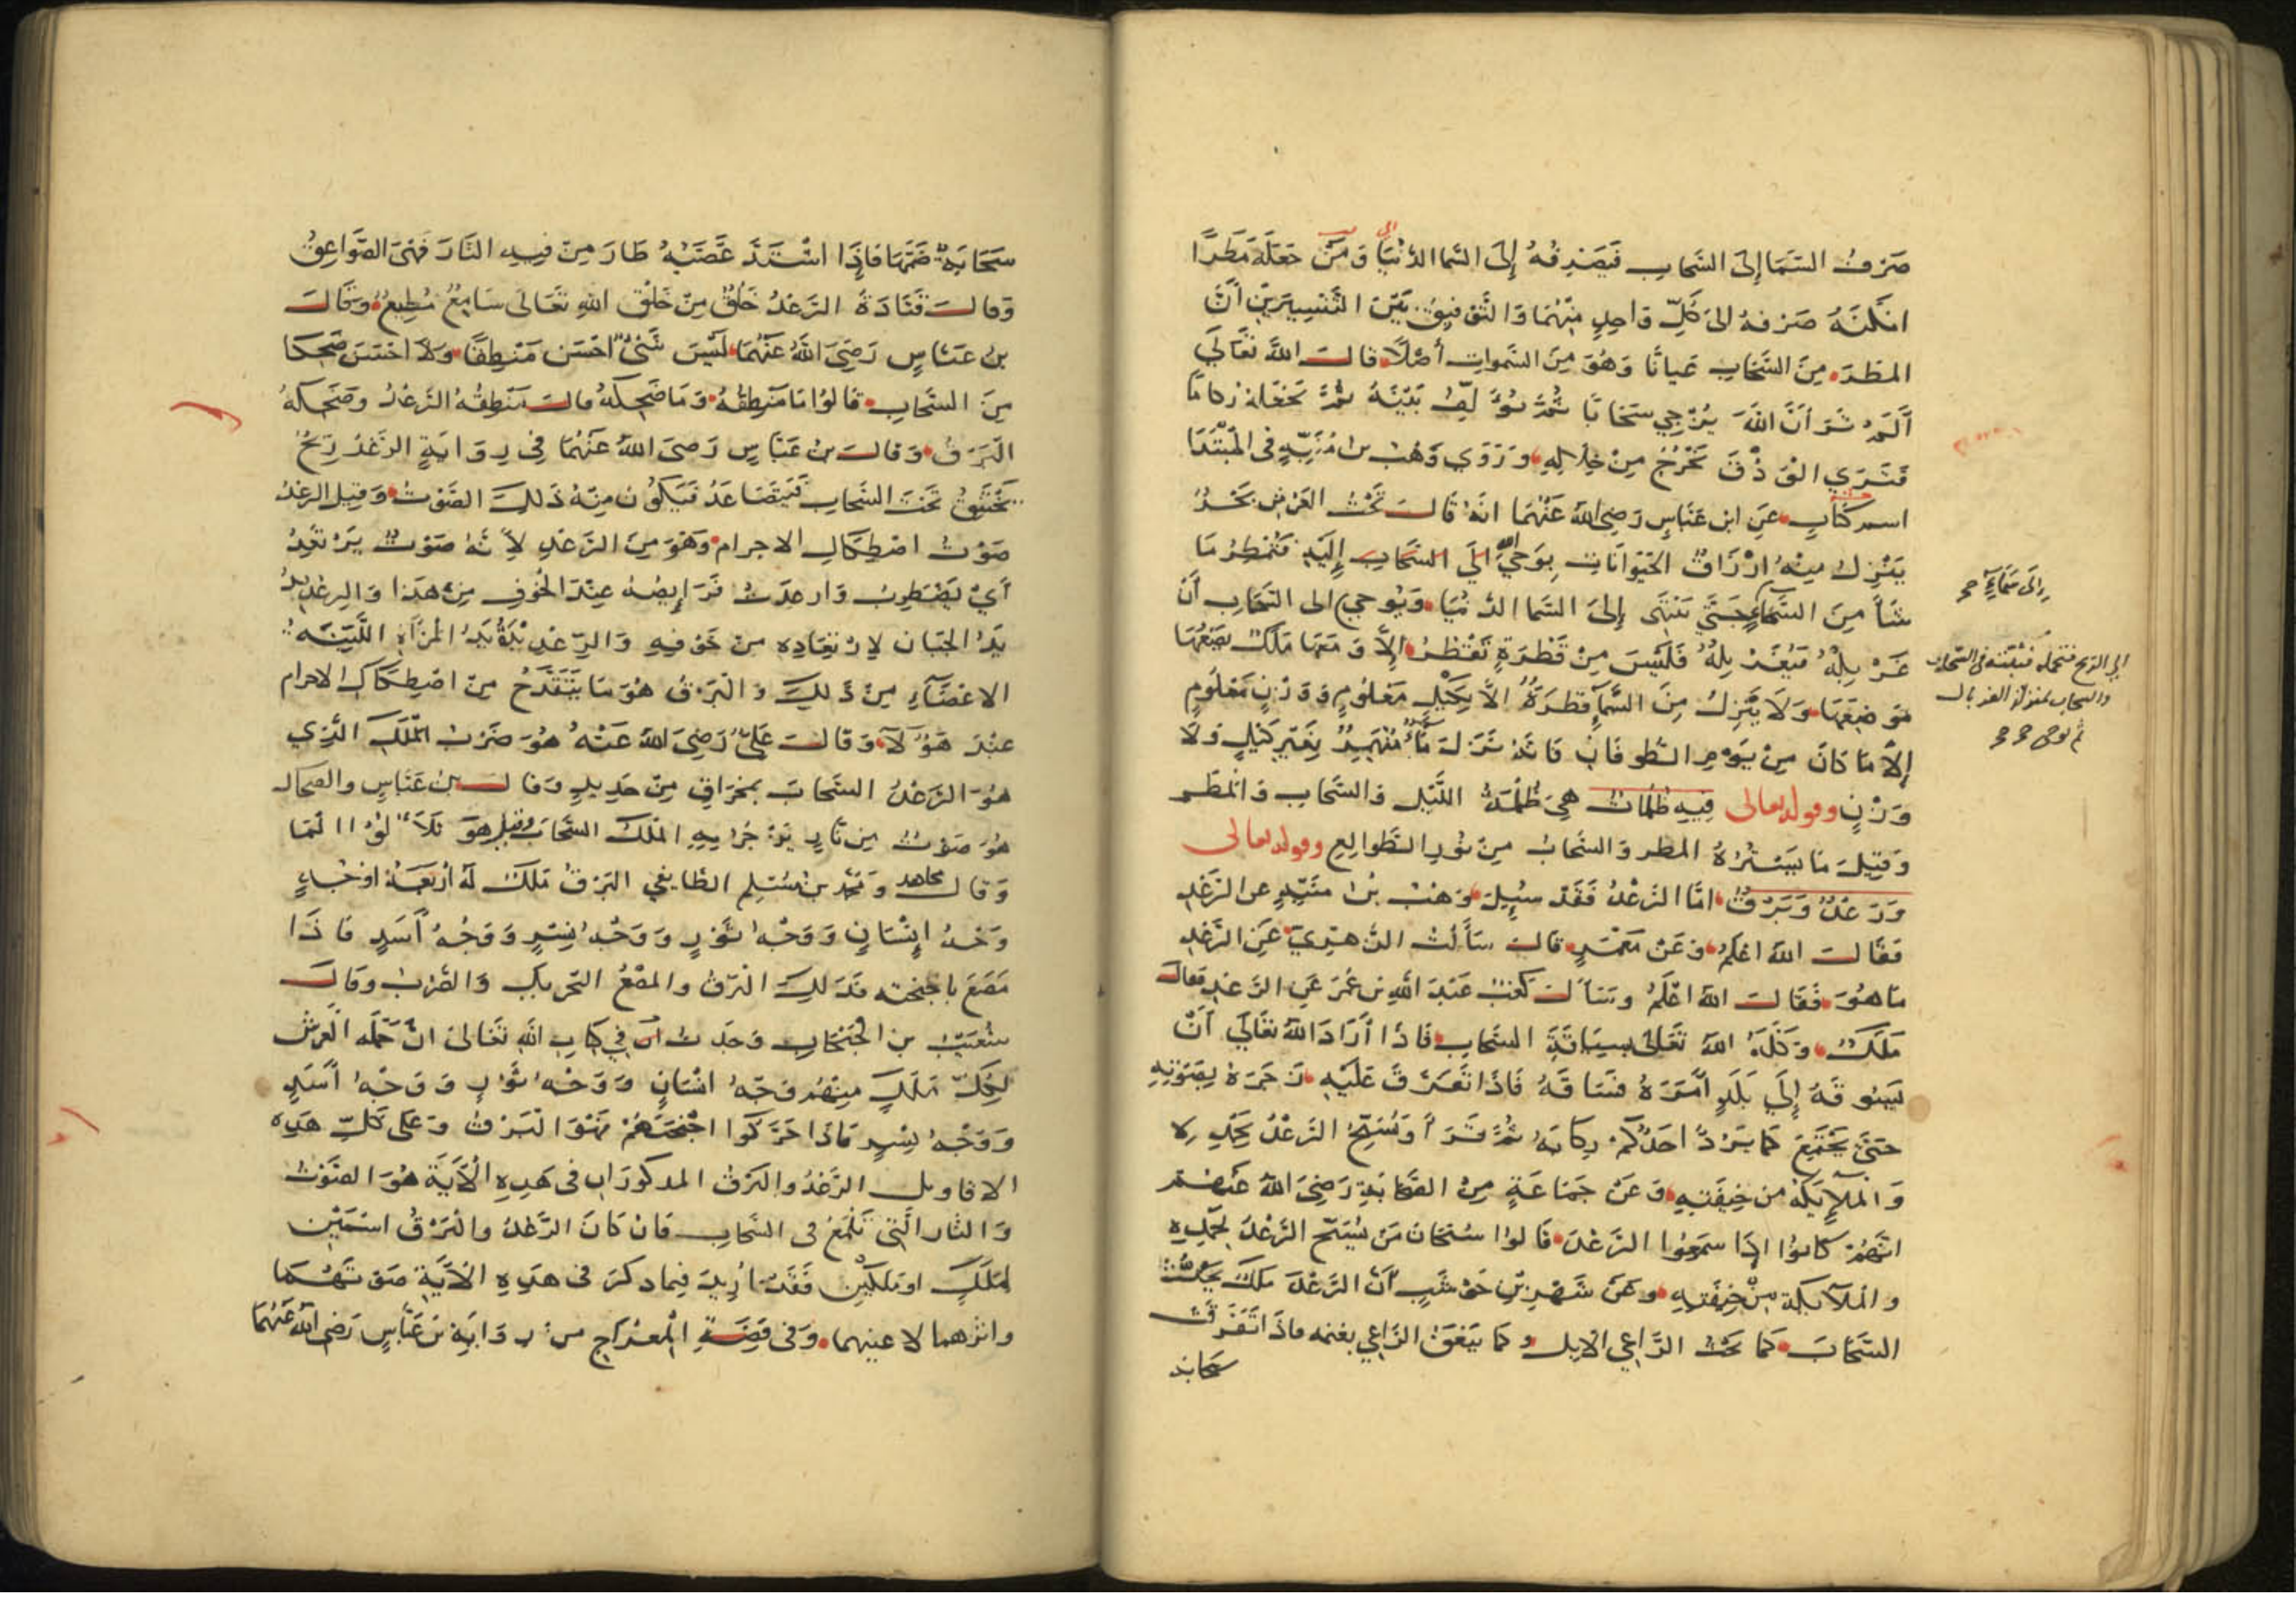 صَرْفُ السَّمَا إلى السَّحابِ فَيَصْرِفُهُ إلى السَّما الدُّنْيَا وَمَنْ جَعَلَهُ مَطَرًا
امكَنَهُ صَرْفهُ الى كُلِّ وَاحِدٍ مِنْهُمَا وَالتَّوْفِيقُ بَيْنَ التَّفْسِيرَيْنِ أَنَّ
المَطَرَ مِنَ السَّحَابِ عَيانًا وَهُوَ مِنَ السَّموات أَصْلًا قالَ اللهُ تَعَالَى
أَلَمْ تَرَ أَنَّ اللهَ يُزْجِي سَحَابًا ثُمَّ يُؤَلِّفُ بَيْنَهُ ثُمَّ يَجْعَلُهُ رُكامًا
فَتَرَى الْوَدْقَ يَخْرُجُ مِنْ خِلَالِهِ وَرَوَى وَهْبُ بن مُنَبِّهٍ فى المُبْتَدَا
اسم كتاب عَنِ ابن عَبَّاسٍ رَضِيَ اللهُ عَنْهُمَا انهُ قَالَ تَحْتَ العَرْشِ بَحْرٌ
يَنْزِلُ مِنْهُ ارْزَاقُ الحَيَوانَاتِ يُوحِي الله الَى السَّحَابِ إِلَيْهِ فَتُمْطِرُ مَا
شَآ مِنَ السَّمَاءِ حَتَّى يَنْتَهى إِلَى السَّما الدُّنْيَا وَيُوحِي الى السَّحَابِ أَنْ
غَرْبِلْهُ فَيُغَرْبِلُهُ فَلَيْسَ مِنْ قَطْرَةٍ تَقْطُرُ إِلَّا وَمَعَهَا مَلَكٌ يَضَعُهَا
مَوْضِعَهَا وَلَا يَنْزِلُ مِنَ السَّمَآ قَطْرَةٌ الَّا بِكَيْلٍ مَعْلُومٍ وَوَزْنٍ مَعْلُومٍ
إِلَّا مَا كَانَ مِنْ يَوْمِ الطُّوفَانِ فَانَّهُ نَزَلَ مَاءٌ مُنْهَمِرٌ بِغَيْرِ كَيْلٍ وَلَا
وَزْنٍ وقوله تعالى فِيهِ ظُلُمَاتٌ هِيَ ظُلْمَةُ اللَّيْلِ وَالسَّحَابِ وَالْمَطَرِ
وَقِيلَ مَا يَسْتُرُهُ المطر وَالسَّحَابُ مِنْ نُورِ الطَّوَالِعِ وقوله تعالى
وَرَعْدٌ وَبَرْقٌ امَّا الرَّعْدُ فَقَدْ سُئِلَ وَهْبُ بْنُ مُنَبِّهٍ عن الرَّعْدِ
فَقَالَ اللهُ اعْلَمُ وَعَنْ مَعْمَرٍ قالَ سَأَلْتُ الزُّهْرِيَّ عَنِ الرَّعْدِ
مَا هُوَ فَقَالَ اللهُ اعْلَمُ وَسَأَلَ كَعْبٌ عَبْدَ اللهِ بن عُمَرَ عَنِ الرَّعْدِ فقال
مَلَكٌ وَكَّلَهُ اللهُ تَعَالَى بِسِيَاقَةِ السَّحَابِ فَاذَا أَرَادَ اللهُ تَعَالَى أَنْ
يَسُوقَهُ إِلَى بَلَدٍ أَمَرَهُ فَسَاقَهُ فَاذَا تَفَرَّقَ عَلَيْهِ زَجَرَهُ بِصَوْتِهِ
حَتَّى يَجْتَمِعَ كَمَا يَرُدُّ احَدُكُمْ رِكَابَهُ ثُمَّ قَرَأَ وَيُسَبِّحُ الرَّعْدُ بِحَمْدِهِ
وَالْمَلَآئِكَةُ مِن خِيفَتِهِ وَعَنْ جَمَاعَةٍ مِنَ الصَّحَابَةِ رَضِيَ اللهُ عَنْهُمْ
انَّهُمْ كَانُوا اذَا سَمِعُوا الرَّعْدَ قَالُوا سُبْحَانَ مَنْ يُسَبِّحُ الرَّعْدُ بِحَمْدِهِ
وَالْمَلَآئِكَةُ مِنْ خِيفَتِهِ وَعَنْ شَهْرِ بْنِ حَوْشَبٍ أَنَّ الرَّعْدَ مَلَكٌ يَحُثُّ
السَّحَابَ كَمَا يَحُثُّ الرَّاعِي الابل وكما يَنْعِقُ الرَّاعِي بغنمه فاذَا تَفَرَّقَتْ
سَحَابَة
الَى سَمَاءٍ
الى الريح فتحمله فتلقيه فى السحاب
والسحاب بمنزلة الغربال
ثم يوحى
سَحَابَةٌ ضَمَّهَا فَإِذَا اشْتَدَّ غَضَبُهُ طَارَ مِنْ فِيهِ النَّارَ فَهِيَ الصَّوَاعِقُ
وَقالَ قَتَادَةُ الرَّعْدُ خَلْقٌ مِنْ خَلْقِ اللهِ تَعَالَى سَامِعٌ مُطِيعٌ وَقَالَ
بنُ عَبَّاسٍ رَضِيَ اللهُ عَنْهُمَا لَيْسَ شَىْءٌ احْسَنَ مَنْطِقًا وَلَا احْسَنَ ضَحِكًا
مِنَ السَّحَابِ قَالُوا مَا مَنْطِقُهُ وَمَا ضَحِكُهُ قالَ مَنْطِقُهُ الرَّعْدُ وَضَحِكُهُ
الْبَرْقُ وَقَالَ بنُ عَبَّاسٍ رَضِيَ اللهُ عَنْهُمَا فِي رِوَايَةٍ الرَّعْدُ رِيحٌ
تَخْتَنِقُ تَحْتَ السَّحَابِ فَتَتَصَاعَدُ فَيَكُونُ مِنْهُ ذَلِكَ الصَّوْتُ وَقِيلَ الرعدُ
صَوْتُ اصْطِكَاكِ الاجرام وَهُوَ مِنَ الرَّعْدِ لِأَنَّهُ صَوْتٌ يَرْتَعِدُ
أَيْ يَضْطَرِبُ وَارعدَتْ فَرَايِصُهُ عِنْدَ الْخُوفِ مِنْ هَذَا وَالرِعْدِيدُ
يَدُ الْجَبَان لِارْتِعَادِهِ مِنْ خَوْفِهِ وَالرِّعْدِيدَةُ الْمَرْأَةِ اللَّيِّنَةِ
الاعْضَآءِ مِنْ ذَلِكَ وَالْبَرْقُ هُوَ مَا يَنْقَدِحُ مِنَ اصْطِكَاكِ الاجرام
عِنْدَ هَؤُلَآءِ وَقَالَ عَلِيٌّ رَضِيَ اللهُ عَنْهُ هُوَ ضَرْبُ الْمَلَكِ الَّذِي
هُوَ الرَّعْدُ السَّحَابَ بِمِخْرَاقٍ مِنْ حَدِيدٍ وَقالَ بنُ عَبَّاسٍ والضحاك
هُوَ صَوْتٌ مِن نَارٍ يَزْجُرُ بِهِ الْمَلَكُ السَّحَابَ وقيل هُوَ تَلَأْلُؤُ الْمَا
وَقالَ مجاهد وَمُحَمَّد بْن مُسْلِمٍ الطَّايفي البَرْقُ مَلَكٌ لَهُ أَرْبَعَةُ اوْجُهٍ
وَجْهُ إِنْسَانٍ وَوَجْهُ ثَوْرٍ وَوَجْهُ نِسْرٍ وَوَجْهُ أَسَدٍ فَاذَا
مَصَعَ باجنحته فَذَلِكَ الْبَرْقُ والمَصْعُ التَّحْرِيكُ وَالضَّرْبُ وَقالَ
شُعَيْبُ بن الجَبْحَابِ وَجَدتُ فِي كِتابِ اللهِ تَعَالَى انَّ حَمَلَةَ الْعَرْشِ
لِكُلِّ مَلَكٍ مِنْهُمْ وَجْهُ انْسَانٍ وَوَجْهُ ثَوْرٍ وَوَجْهُ أَسَدٍ
وَوَجْهُ نِسْرٍ فَاذَا حَرَّكُوا اجْنِحَتَهُمْ فَهْوَ الْبَرْقُ وَعَلَى كُلِّ هَذِهِ
الاقاويل الرَّعْدُ والْبَرْقُ المذكورَانِ فى هَذِهِ الْآيَةِ هُوَ الصَّوْتُ
وَالنَّار الَّتِى تَلْمَعُ فى السَّحَابِ فَانْ كَانَ الرَّعْدُ والْبَرْقُ اسْمَيْنِ
لِمَلَكٍ او مَلَكَيْنِ فَقَدْ ارِيدَ فِيمَا ذكرَ فى هَذِهِ الْآيَةِ صَوْتَهُمَا
واثَرَهما لا عينهما وَفى قِصَّةِ الْمِعْرَاجِ مِن رِوَايَةِ بن عَبَّاسٍ رَضِيَ اللهُ عَنْهُمَا